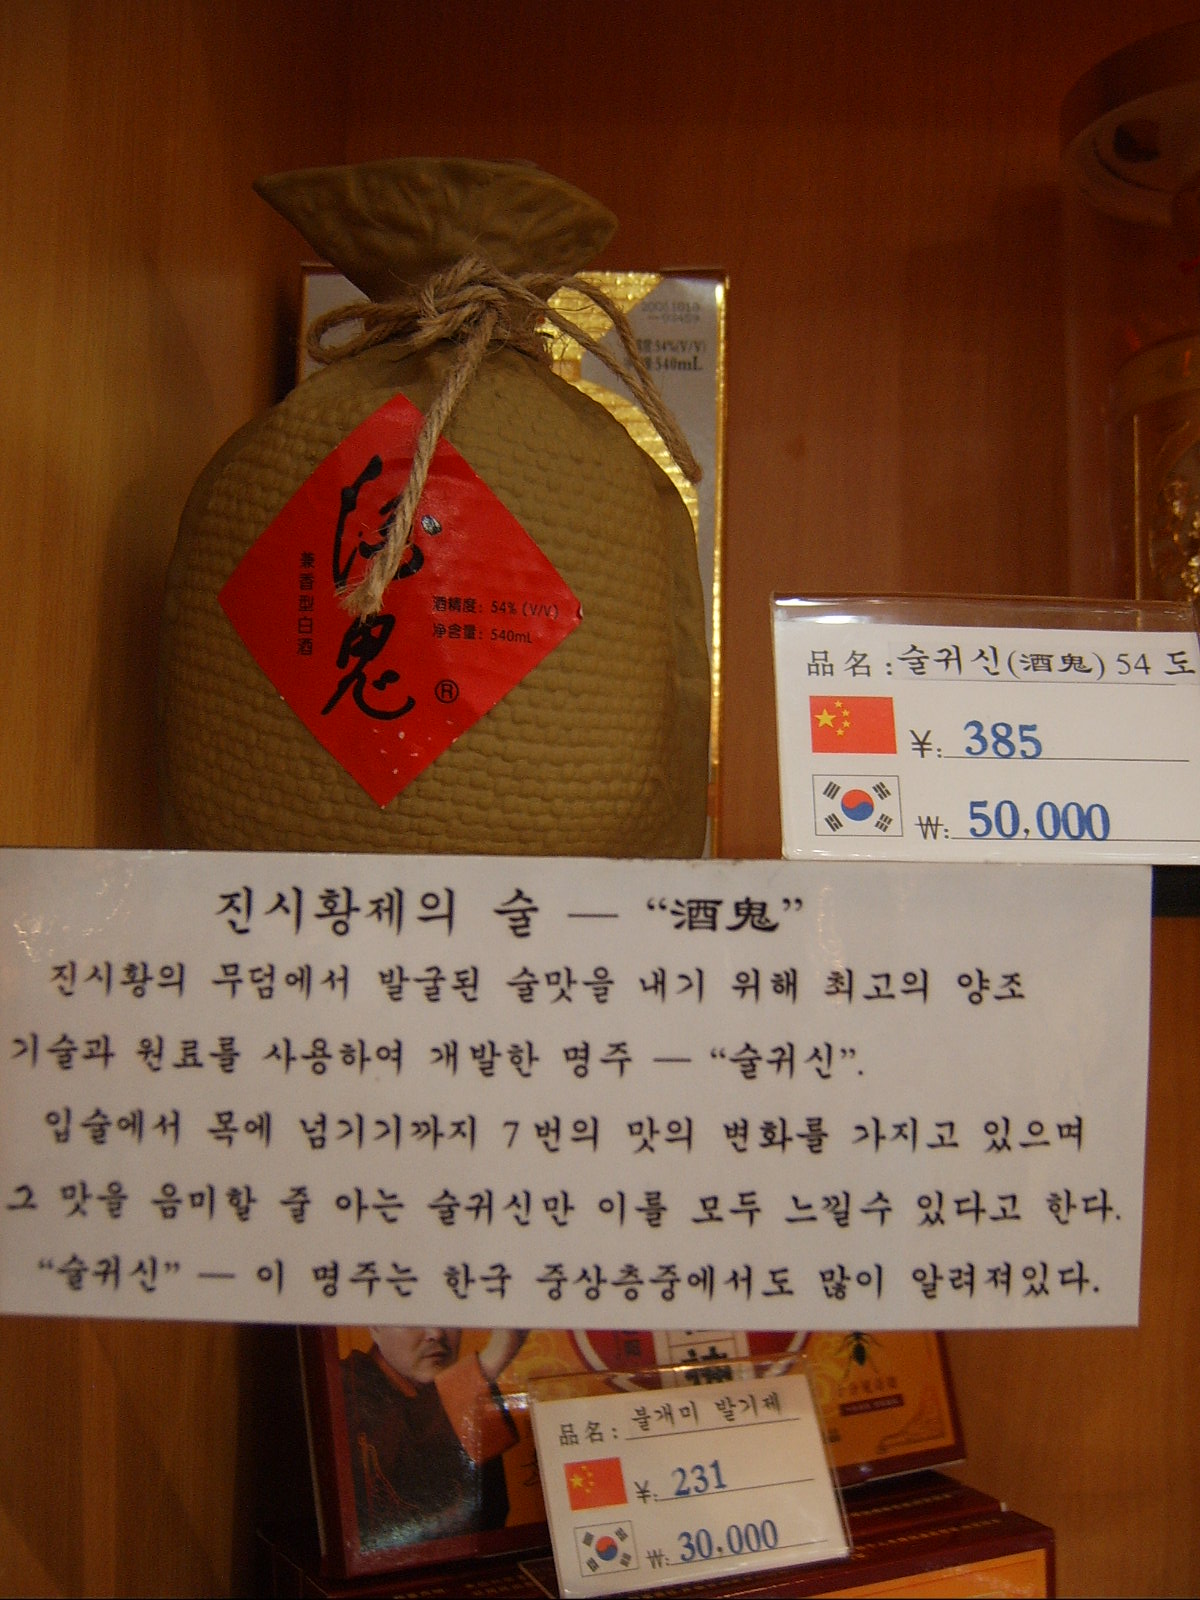 酒鬼
兼香型白酒
酒精度：54%(V/V)
净含量：540mL
®
54%(V/V)
540mL
品名：술귀신(酒鬼) 54 도
¥: 385
₩: 50,000
진시황제의 술 — “酒鬼”
진시황의 무덤에서 발굴된 술맛을 내기 위해 최고의 양조
기술과 원료를 사용하여 개발한 명주 — “술귀신”.
입술에서 목에 넘기기까지 7번의 맛의 변화를 가지고 있으며
그 맛을 음미할 줄 아는 술귀신만 이를 모두 느낄수 있다고 한다.
“술귀신” — 이 명주는 한국 중상층중에서도 많이 알려져있다.
品名：불개미 발기제
¥: 231
₩: 30,000